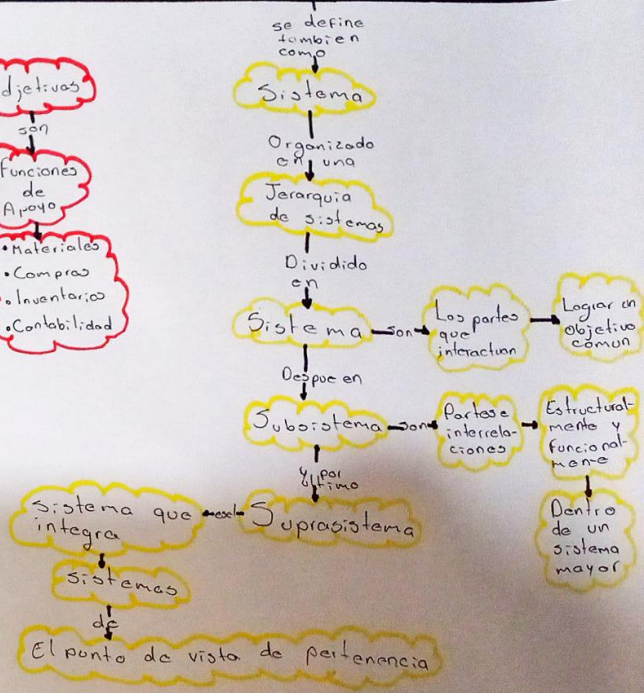 djetivas
son
Funciones
de
Apoyo
•Materiales
•Compras
•Inventarios
•Contabilidad
se define
tambien
como
Sistema
Organizado
en una
Jerarquia
de sistemas
Dividido
en
Sistema
son
Los partes
que
interactuan
Lograr un
objetivo
común
Despue en
Subsistema
son
Partes e
interrela-
ciones
Estructural-
mente y
funcional-
mente
Dentro
de un
sistema
mayor
y por
ultimo
Suprasistema
es el
sistema que
integra
sistemas
de
El punto de vista de pertenencia